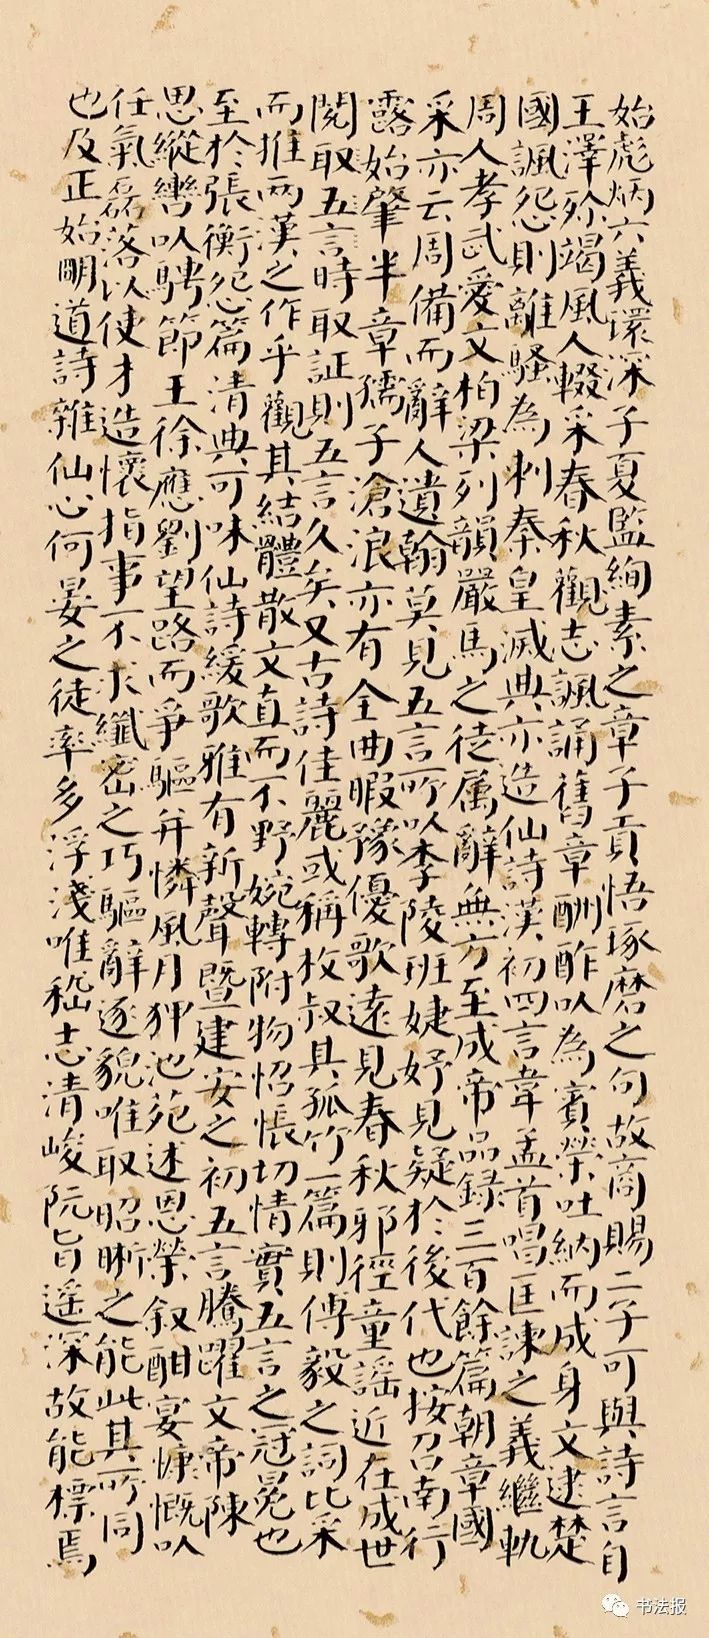 始彪炳六義環深子夏監絢素之章子貢悟琢磨之句故商賜二子可與詩言自
王澤殄竭風人輟采春秋觀志諷誦舊章酬酢以為賓榮吐納而成身文逮楚
國諷怨則離騷為刺秦皇滅典亦造仙詩漢初四言韋孟首唱匡諫之義繼軌
周人孝武愛文柏梁列韻嚴馬之徒属辭無方至成帝品錄三百餘篇朝章國
采亦云周備而辭人遺翰莫見五言所以李陵班婕妤見疑於後代也按召南行
露始肇半章孺子滄浪亦有全曲暇豫優歌遠見春秋邪徑童謠近在成世
閱取五言時取証則五言久矣又古詩佳麗或稱枚叔其孤竹一篇則傅毅之詞比采
而推兩漢之作乎觀其結體散文直而不野婉轉附物怊悵切情實五言之冠冕也
至於張衡怨篇清典可味仙詩緩歌雅有新聲暨建安之初五言騰躍文帝陳
思縱轡以騁節王徐應劉望路而爭驅并憐風月狎池苑述恩榮叙酣宴慷慨以
任氣磊落以使才造懷指事不求纖密之巧驅辭逐貌唯取昭晰之能此其所同
也及正始明道詩雜仙心何晏之徒率多浮淺唯嵇志清峻阮旨遙深故能標焉
书法报